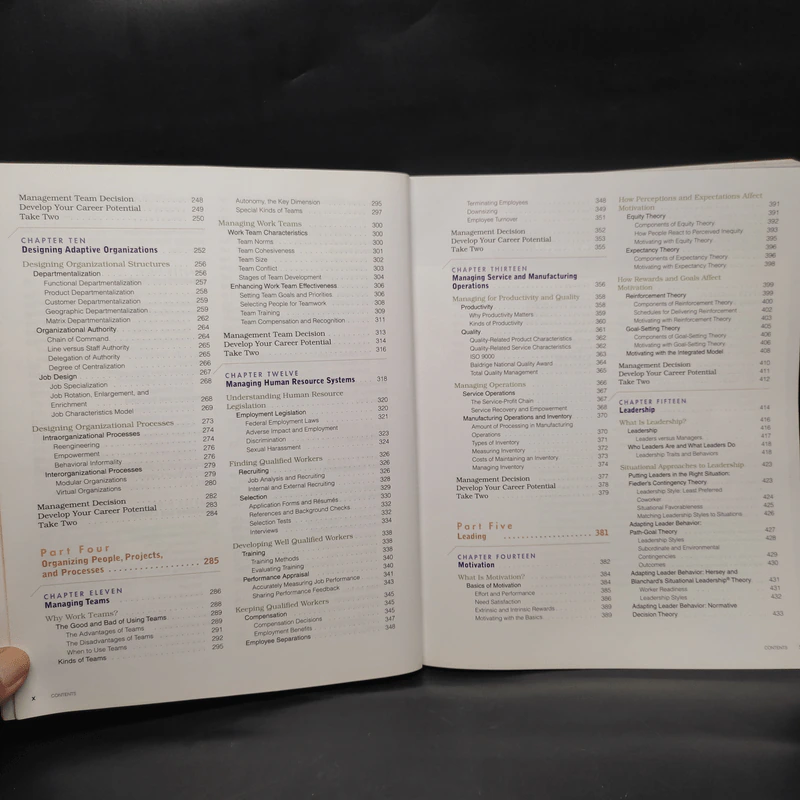 Management Team Decision 248
Develop Your Career Potential 249
Take Two 250
CHAPTER TEN
Designing Adaptive Organizations 252
Designing Organizational Structures 256
Departmentalization 256
Functional Departmentalization 257
Product Departmentalization 258
Customer Departmentalization 259
Geographic Departmentalization 259
Matrix Departmentalization 262
Organizational Authority 264
Chain of Command 264
Line versus Staff Authority 265
Delegation of Authority 265
Degree of Centralization 266
Job Design 267
Job Specialization 268
Job Rotation, Enlargement, and
Enrichment 268
Job Characteristics Model 269
Designing Organizational Processes 273
Intraorganizational Processes 274
Reengineering 274
Empowerment 276
Behavioral Informality 276
Interorganizational Processes 279
Modular Organizations 279
Virtual Organizations 280
Management Decision 282
Develop Your Career Potential 283
Take Two 284
Part Four
Organizing People, Projects,
and Processes 285
CHAPTER ELEVEN 286
Managing Teams
Why Work Teams? 288
The Good and Bad of Using Teams 289
The Advantages of Teams 289
The Disadvantages of Teams 291
When to Use Teams 292
Kinds of Teams 295
x CONTENTS
Autonomy, the Key Dimension 295
Special Kinds of Teams 297
Managing Work Teams 300
Work Team Characteristics 300
Team Norms 300
Team Cohesiveness 301
Team Size 302
Team Conflict 303
Stages of Team Development 304
Enhancing Work Team Effectiveness 306
Setting Team Goals and Priorities 306
Selecting People for Teamwork 308
Team Training 309
Team Compensation and Recognition 311
Management Team Decision 313
Develop Your Career Potential 314
Take Two 316
CHAPTER TWELVE
Managing Human Resource Systems 318
Understanding Human Resource
Legislation 320
Employment Legislation 320
Federal Employment Laws 321
Adverse Impact and Employment
Discrimination 323
Sexual Harassment 324
Finding Qualified Workers 326
Recruiting 326
Job Analysis and Recruiting 328
Internal and External Recruiting 329
Selection 330
Application Forms and Résumés 332
References and Background Checks 332
Selection Tests 334
Interviews
Developing Well Qualified Workers 338
Training 338
Training Methods 340
Evaluating Training 340
Performance Appraisal 341
Accurately Measuring Job Performance 343
Sharing Performance Feedback
Keeping Qualified Workers 345
Compensation 345
Compensation Decisions 345
Employment Benefits 347
Employee Separations 348
Terminating Employees 348
Downsizing 349
Employee Turnover 351
Management Decision 352
Develop Your Career Potential 353
Take Two 355
CHAPTER THIRTEEN
Managing Service and Manufacturing
Operations 356
Managing for Productivity and Quality 358
Productivity 358
Why Productivity Matters 359
Kinds of Productivity 360
Quality 361
Quality-Related Product Characteristics 362
Quality-Related Service Characteristics 362
ISO 9000 363
Baldrige National Quality Award 364
Total Quality Management 365
Managing Operations 366
Service Operations 367
The Service-Profit Chain 367
Service Recovery and Empowerment 368
Manufacturing Operations and Inventory 370
Amount of Processing in Manufacturing
Operations 370
Types of Inventory 371
Measuring Inventory 372
Costs of Maintaining an Inventory 373
Managing Inventory 374
Management Decision 377
Develop Your Career Potential 378
Take Two 379
Part Five
Leading 381
CHAPTER FOURTEEN
Motivation 382
What Is Motivation? 384
Basics of Motivation 384
Effort and Performance 385
Need Satisfaction 386
Extrinsic and Intrinsic Rewards 389
Motivating with the Basics 389
How Perceptions and Expectations Affect
Motivation 391
Equity Theory 391
Components of Equity Theory 392
How People React to Perceived Inequity 393
Motivating with Equity Theory 395
Expectancy Theory 396
Components of Expectancy Theory 396
Motivating with Expectancy Theory 398
How Rewards and Goals Affect
Motivation 399
Reinforcement Theory 399
Components of Reinforcement Theory 400
Schedules for Delivering Reinforcement 402
Motivating with Reinforcement Theory 403
Goal-Setting Theory 405
Components of Goal-Setting Theory 406
Motivating with Goal-Setting Theory 406
Motivating with the Integrated Model 408
Management Decision 410
Develop Your Career Potential 411
Take Two 412
CHAPTER FIFTEEN
Leadership 414
What Is Leadership? 416
Leadership 416
Leaders versus Managers 417
Who Leaders Are and What Leaders Do 418
Leadership Traits and Behaviors 419
Situational Approaches to Leadership 423
Putting Leaders in the Right Situation:
Fiedler's Contingency Theory 423
Leadership Style: Least Preferred
Coworker 424
Situational Favorableness 425
Matching Leadership Styles to Situations 426
Adapting Leader Behavior:
Path-Goal Theory 427
Leadership Styles 428
Subordinate and Environmental
Contingencies 429
Outcomes 430
Adapting Leader Behavior: Hersey and
Blanchard's Situational Leadership® Theory 431
Worker Readiness 431
Leadership Styles 432
Adapting Leader Behavior: Normative
Decision Theory 433
CONTENTS